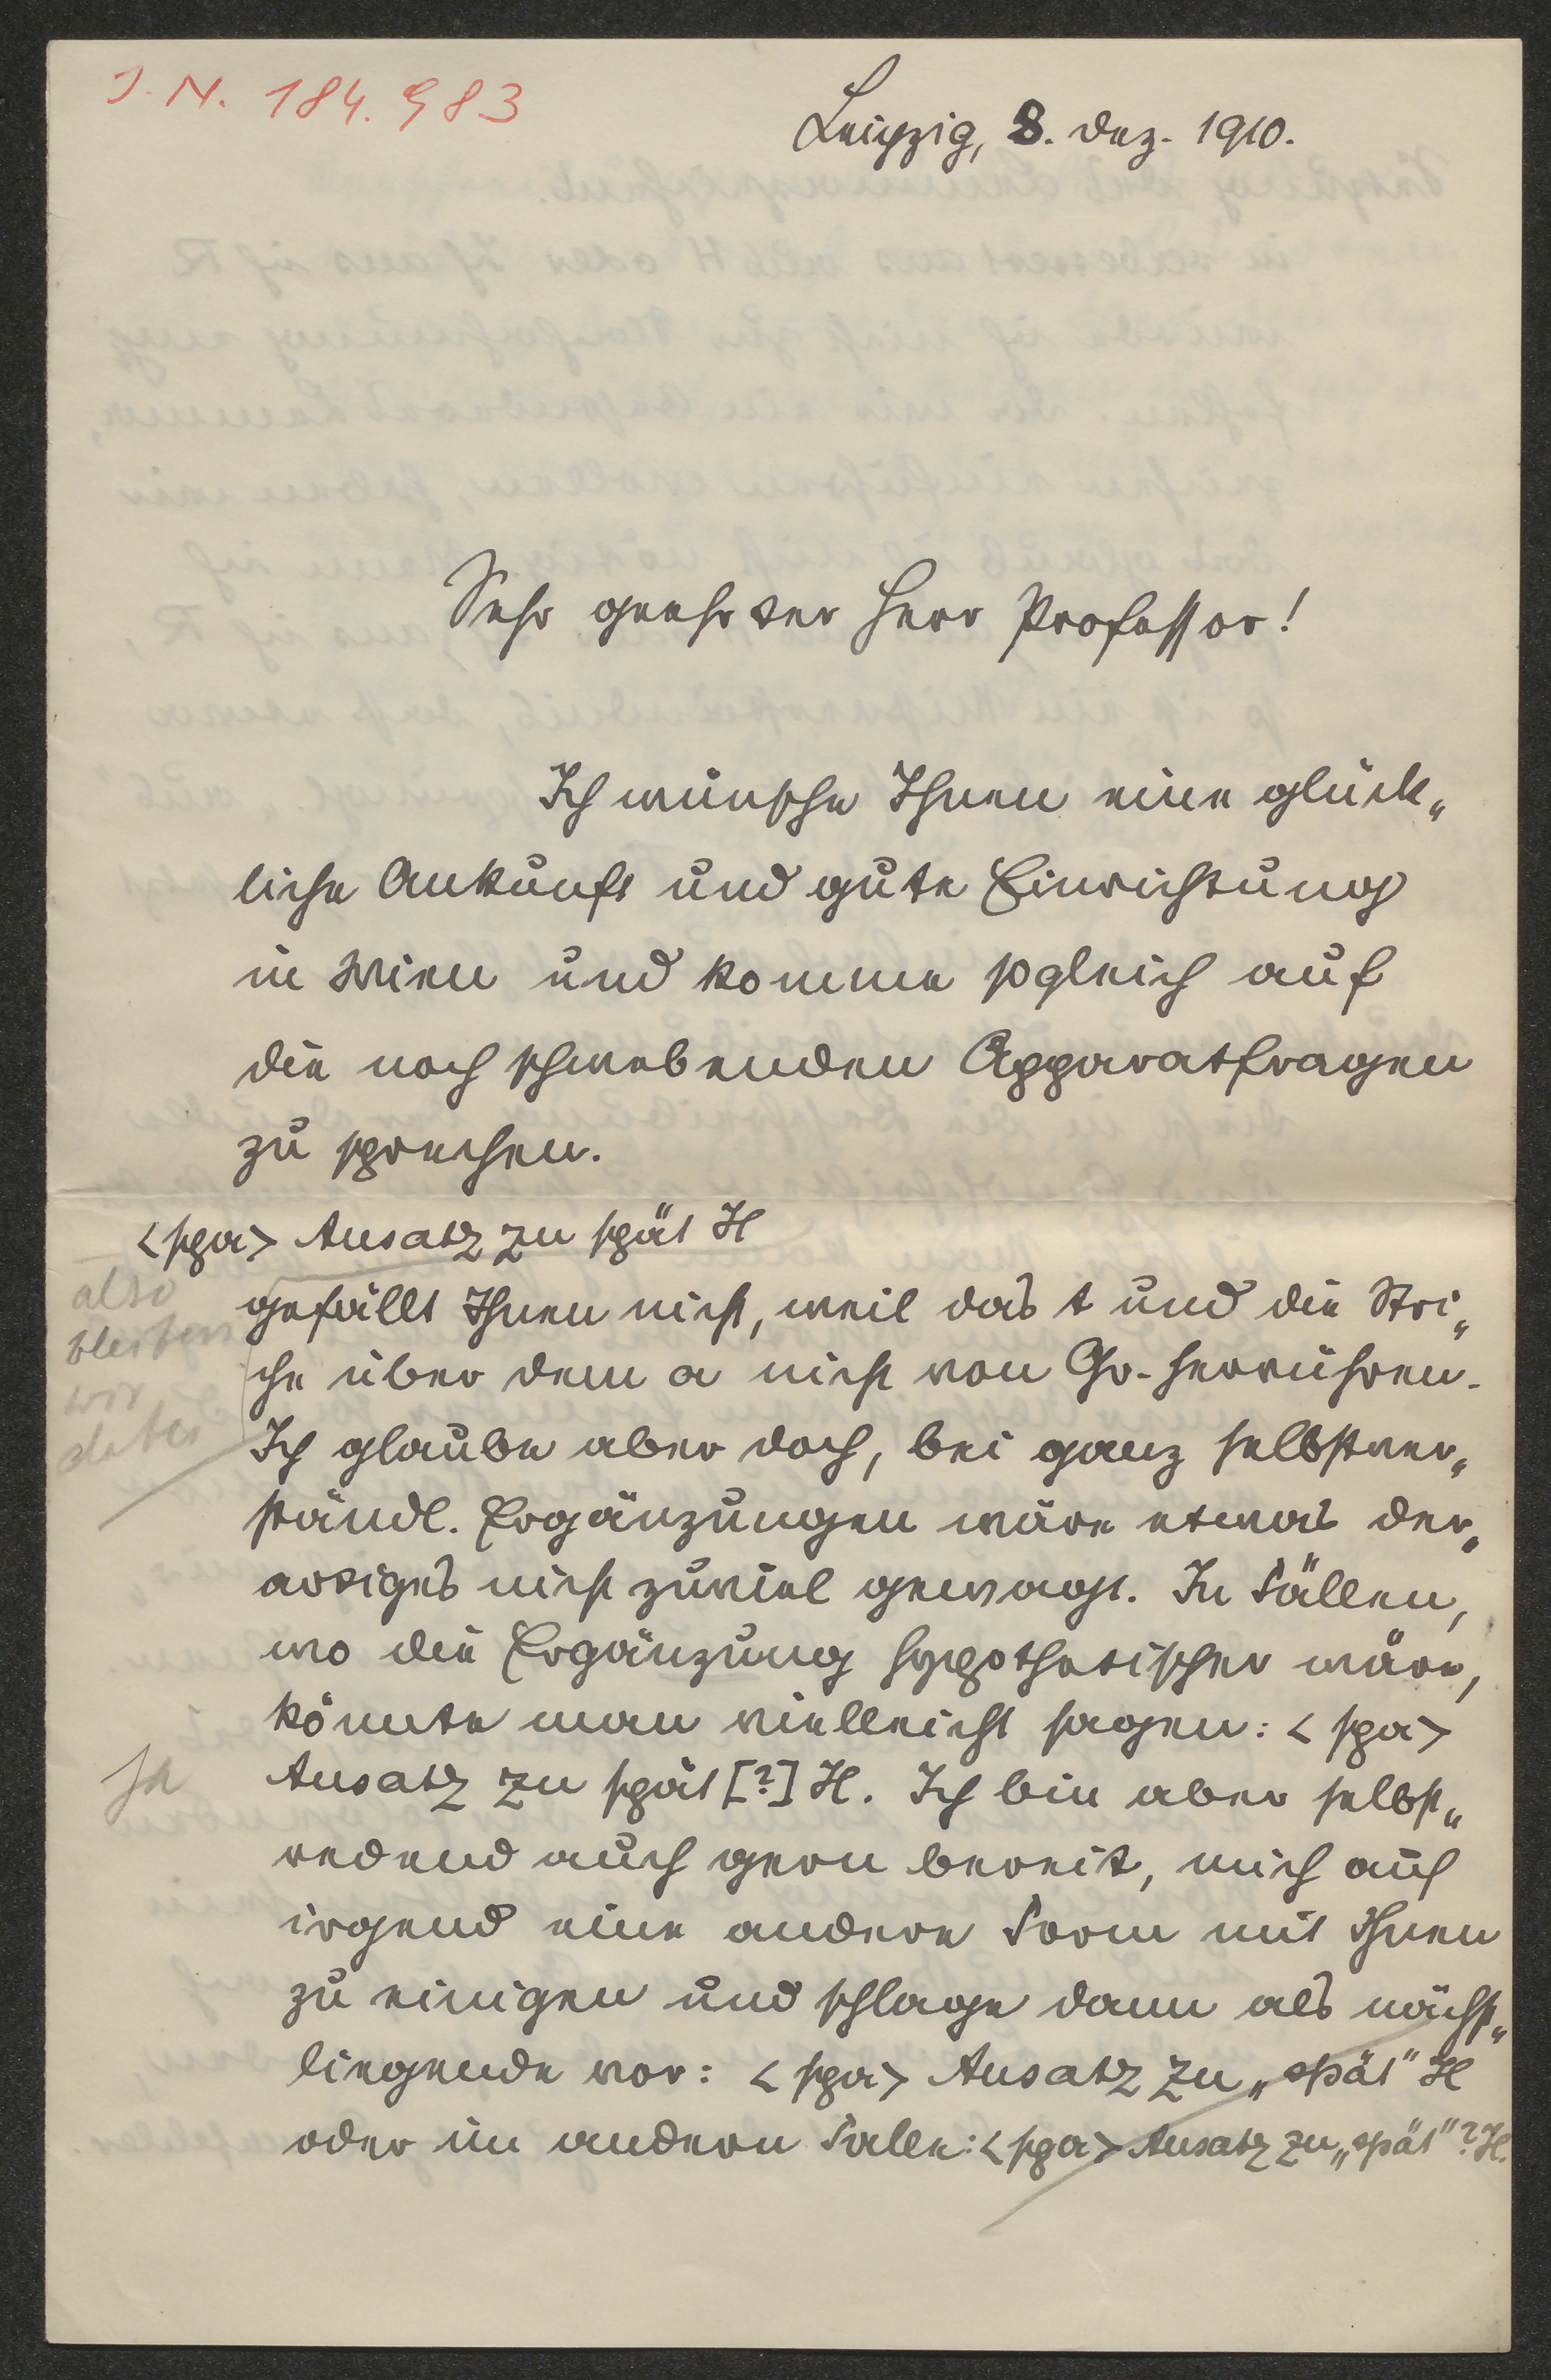 J. N. 184.983
Leipzig, 8. Dez. 1910.
Sehr geehrter Herr Professor!
Ich wünsche Ihnen eine glück„
liche Ankunft und gute Einrichtung
in Wien und komme sogleich auf
die noch schwebenden Apparatfragen
zu sprechen.
<spa> Ansatz zu spät H
gefällt Ihnen nicht, weil das t und die Stri„
che über dem a nicht von Gr. herrühren.
Ich glaube aber doch, bei ganz selbstver„
ständl. Ergänzungen wäre etwas der„
artiges nicht zuviel gewagt. In Fällen,
wo die Ergänzung hypothetischer wäre,
könnte man vielleicht sagen: <spa>
Ansatz zu spät [?] H. Ich bin aber selbst„
redend auch gern bereit, mich auf
irgend eine andere Form mit Ihnen
zu einigen und schlage dann als nächst„
liegende vor: <spa> Ansatz zu „spät" H
oder im andern Falle: <spa> Ansatz zu „spät"? H.
also
bleiben
wir
dabei
ja